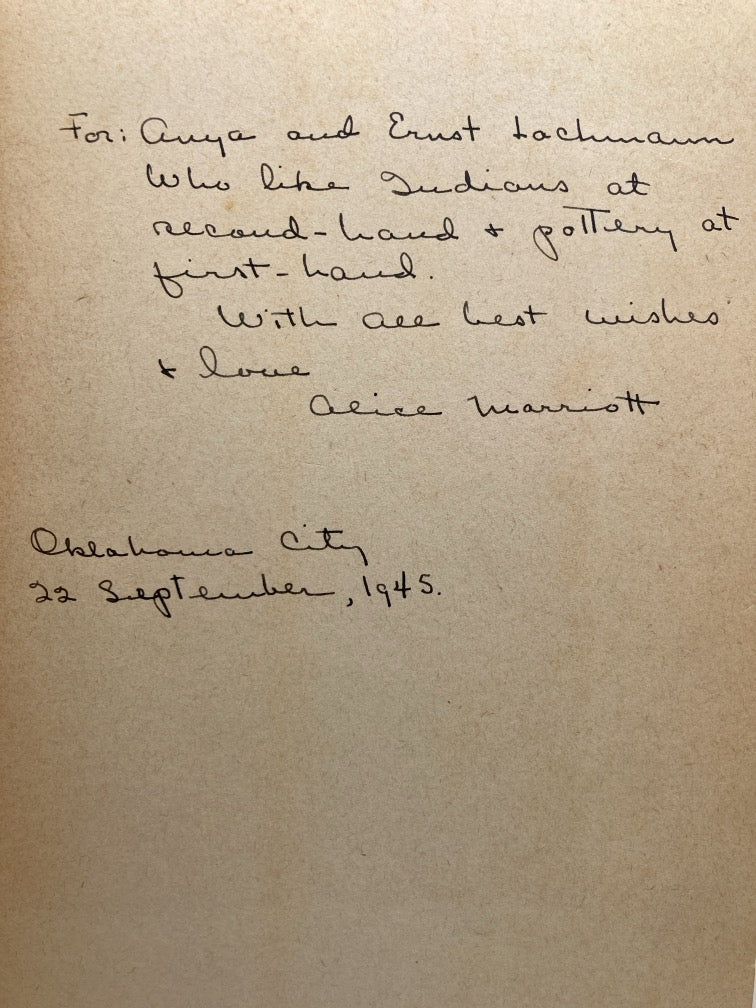 For: Anya and Ernst Lachmann
Who like Indians at
second-hand & pottery at
first-hand.
With all best wishes
& love
Alice Marriott
Oklahoma City
22 September, 1945.